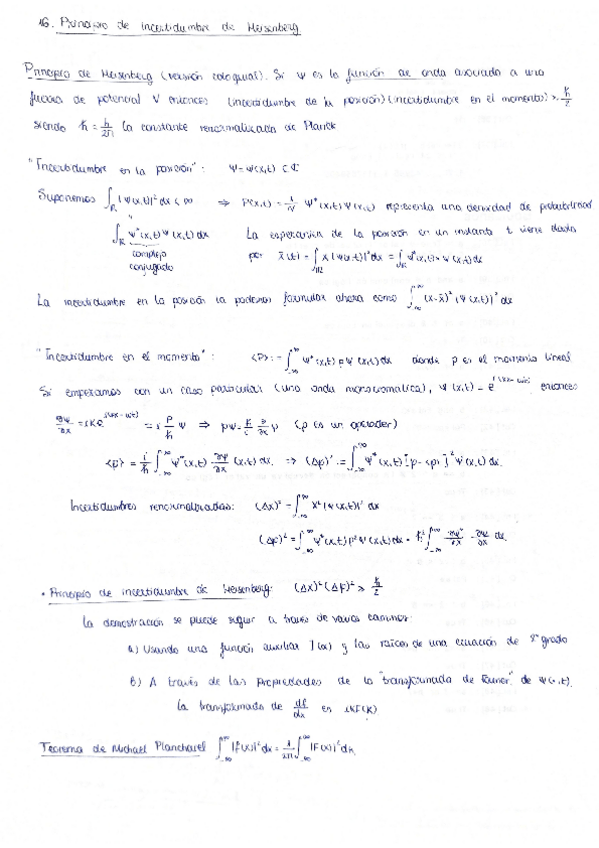 16. Principio de incertidumbre de Heisenberg
Principio de Heisenberg (versión coloquial). Si ψ es la función de onda asociada a una
fuerza de potencial V entonces (incertidumbre de la posición)(incertidumbre en el momento) ≥ ħ/2
siendo ħ = h/2π la constante renormalizada de Planck
"Incertidumbre en la posición": ψ = ψ(x,t) ⊂ ℂ
Suponemos ∫_ℝ |ψ(x,t)|² dx < ∞ ⇒ P(x,t) = 1/N ψ*(x,t) ψ(x,t) representa una densidad de probabilidad
∫_ℝ ψ*(x,t) ψ(x,t) dx La esperanza de la posición en un instante t viene dada
complejo conjugado por x̄(t) = ∫_ℝ x |ψ(x,t)|² dx = ∫_ℝ ψ*(x,t) x ψ(x,t) dx
La incertidumbre en la posición la podemos formular ahora como ∫_{-∞}^{∞} (x-x̄)² |ψ(x,t)|² dx
"Incertidumbre en el momento": <p> := ∫_{-∞}^{∞} ψ*(x,t) p ψ(x,t) dx donde p es el momento lineal
Si empezamos con un caso particular (una onda monocromática), ψ(x,t) = e^{i(kx-ωt)} entonces
∂ψ/∂x = ike^{i(kx-ωt)} = i p/ħ ψ ⇒ pψ = ħ/i ∂/∂x ψ (p es un operador)
<p> = ħ/i ∫_{-∞}^{∞} ψ*(x,t) ∂ψ/∂x (x,t) dx. ⇒ (Δp)² := ∫_{-∞}^{∞} ψ*(x,t) [p-<p>]² ψ(x,t) dx.
Incertidumbres renormalizadas: (Δx)² = ∫_{-∞}^{∞} x² |ψ(x,t)|² dx
(Δp)² = ∫_{-∞}^{∞} ψ*(x,t) p² ψ(x,t) dx = ħ² ∫_{-∞}^{∞} ∂ψ*/∂x · ∂ψ/∂x dx.
• Principio de incertidumbre de Heisenberg: (Δx)² (Δp)² ≥ ħ/2
La demostración se puede seguir a través de varios caminos:
a) Usando una función auxiliar I(α) y las raíces de una ecuación de 2º grado
b) A través de las propiedades de la "transformada de Fourier" de ψ(·,t).
La transformada de df/dx es ikF(k)
Teorema de Michael Plancharel ∫_{-∞}^{∞} |f(x)|² dx = 1/2π ∫_{-∞}^{∞} |F(k)|² dk